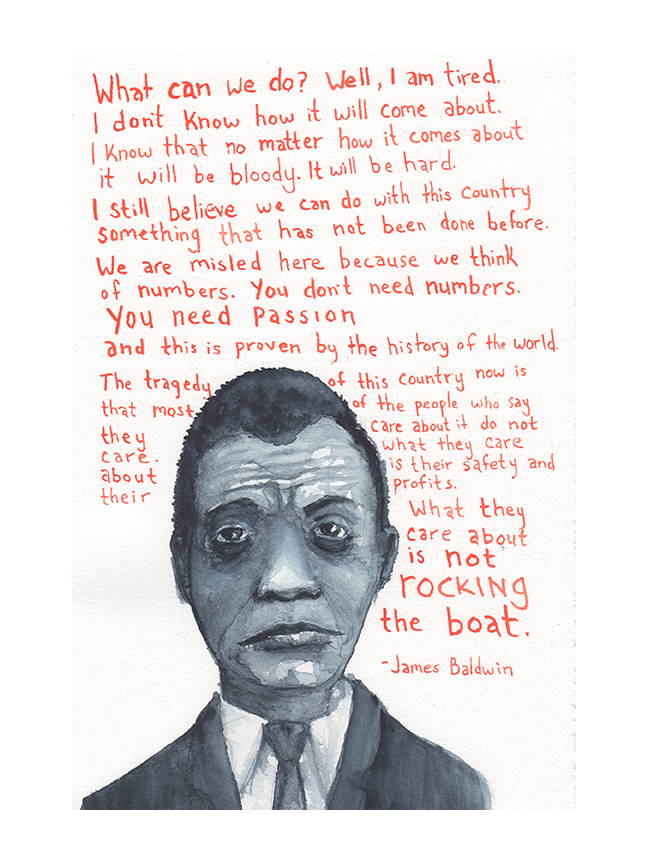 What can we do? Well, I am tired.
I don't know how it will come about.
I know that no matter how it comes about
it will be bloody. It will be hard.
I still believe we can do with this country
something that has not been done before.
We are misled here because we think
of numbers. You don't need numbers.
You need passion
and this is proven by the history of the world.
The tragedy of this country now is
that most of the people who say
they care about it do not
care. what they care
about is their safety and
their profits.
What they
care about
is not
rocking
the boat.
-James Baldwin